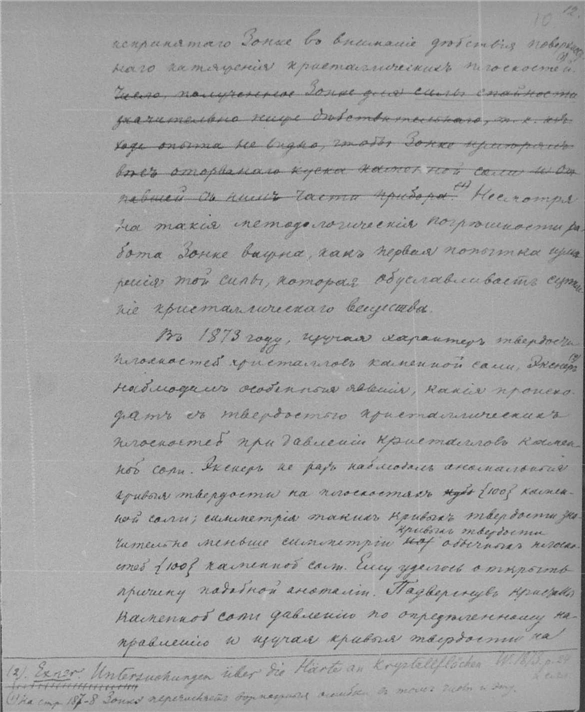 12.
10
непринятаго Зонке въ вниманіе дѣйствія поверхност-
наго натяженія кристаллическихъ плоскостей.
Число, полученное Зонке для силы спайности
значительно ниже дѣйствительнаго, т. к. изъ
хода опыта не видно, чтобы Зонке
вѣсъ оторваннаго куска каменной соли и
съ нимъ части прибора. (1) Несмотря
на такія методологическія погрѣшности ра-
бота Зонке важна, какъ первая попытка измѣ-
ренія той силы, которая обуславливаетъ
кристаллическаго вещества.
Въ 1873 году, изучая характеръ твердости
плоскостей кристалловъ каменной соли, Экснеръ (2)
наблюдалъ особенныя явленія, какія происхо-
дятъ съ твердостью кристаллическихъ
плоскостей при давленіи кристалловъ камен-
ной соли. Экснеръ не разъ наблюдалъ аномальныя
кривыя твердости на плоскостяхъ {100} камен-
ной соли; симметрія такихъ кривыхъ твердости зна-
чительно меньше симметріи кривыхъ твердости обычныхъ плоско-
стей {100} каменной соли. Ему удалось открыть
причину подобной аномаліи. Подвергнувъ кристаллъ
каменной соли давленію по опредѣленному на-
правленію и изучая кривыя твердости на
(2). Exner. Untersuchungen über die Härte an Krystallflächen W. 1873. p.
(1) На стр. 187-8 Зонке перечисляетъ ошибки, въ томъ числѣ и эту.